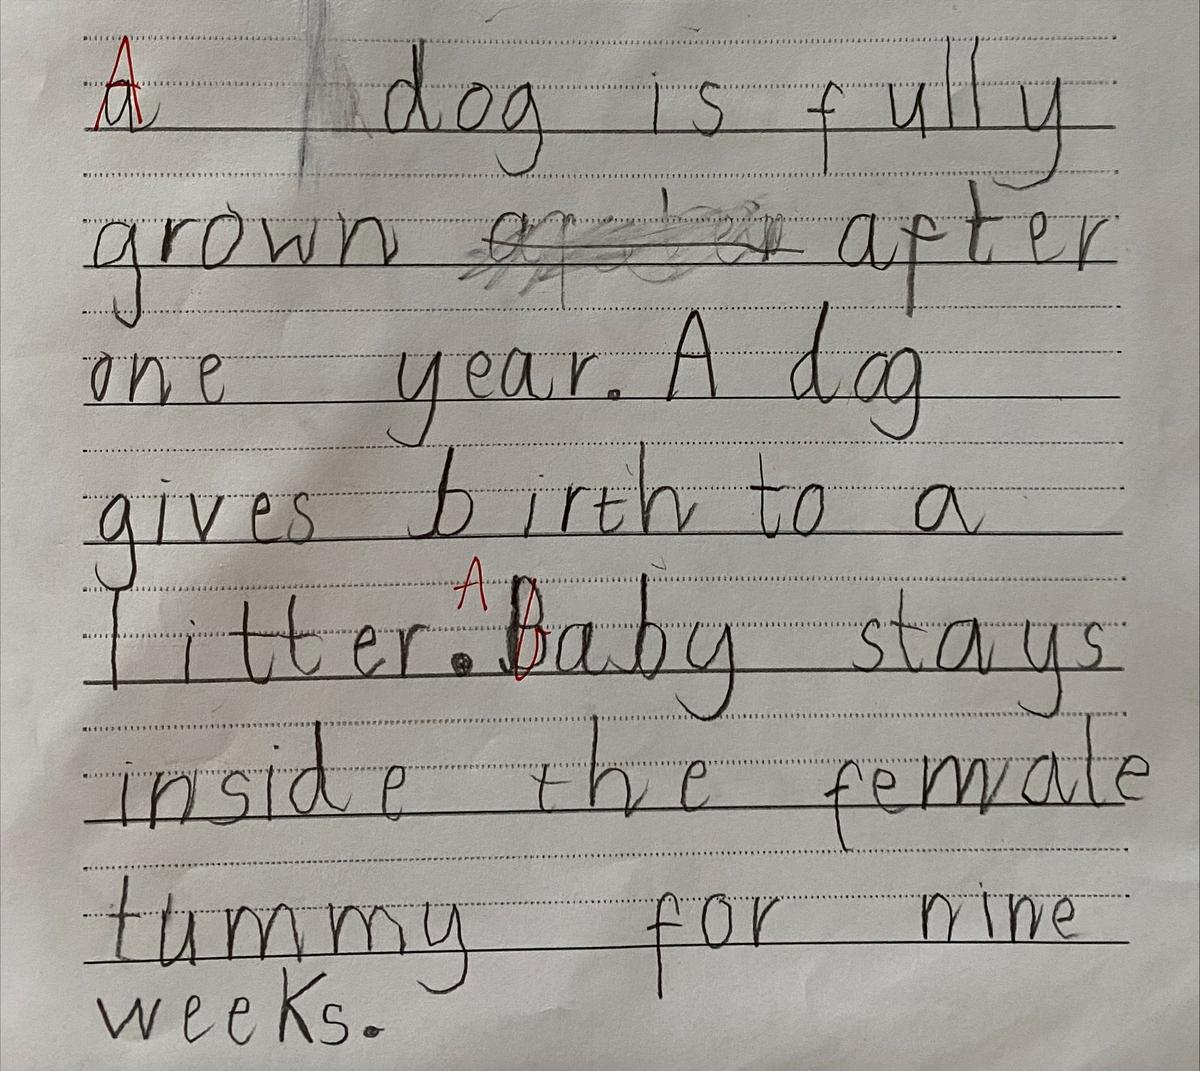 A dog is fully
grown after after
one year. A dog
gives birth to a
litter. A Baby stays
inside the female
tummy for nine
weeks.